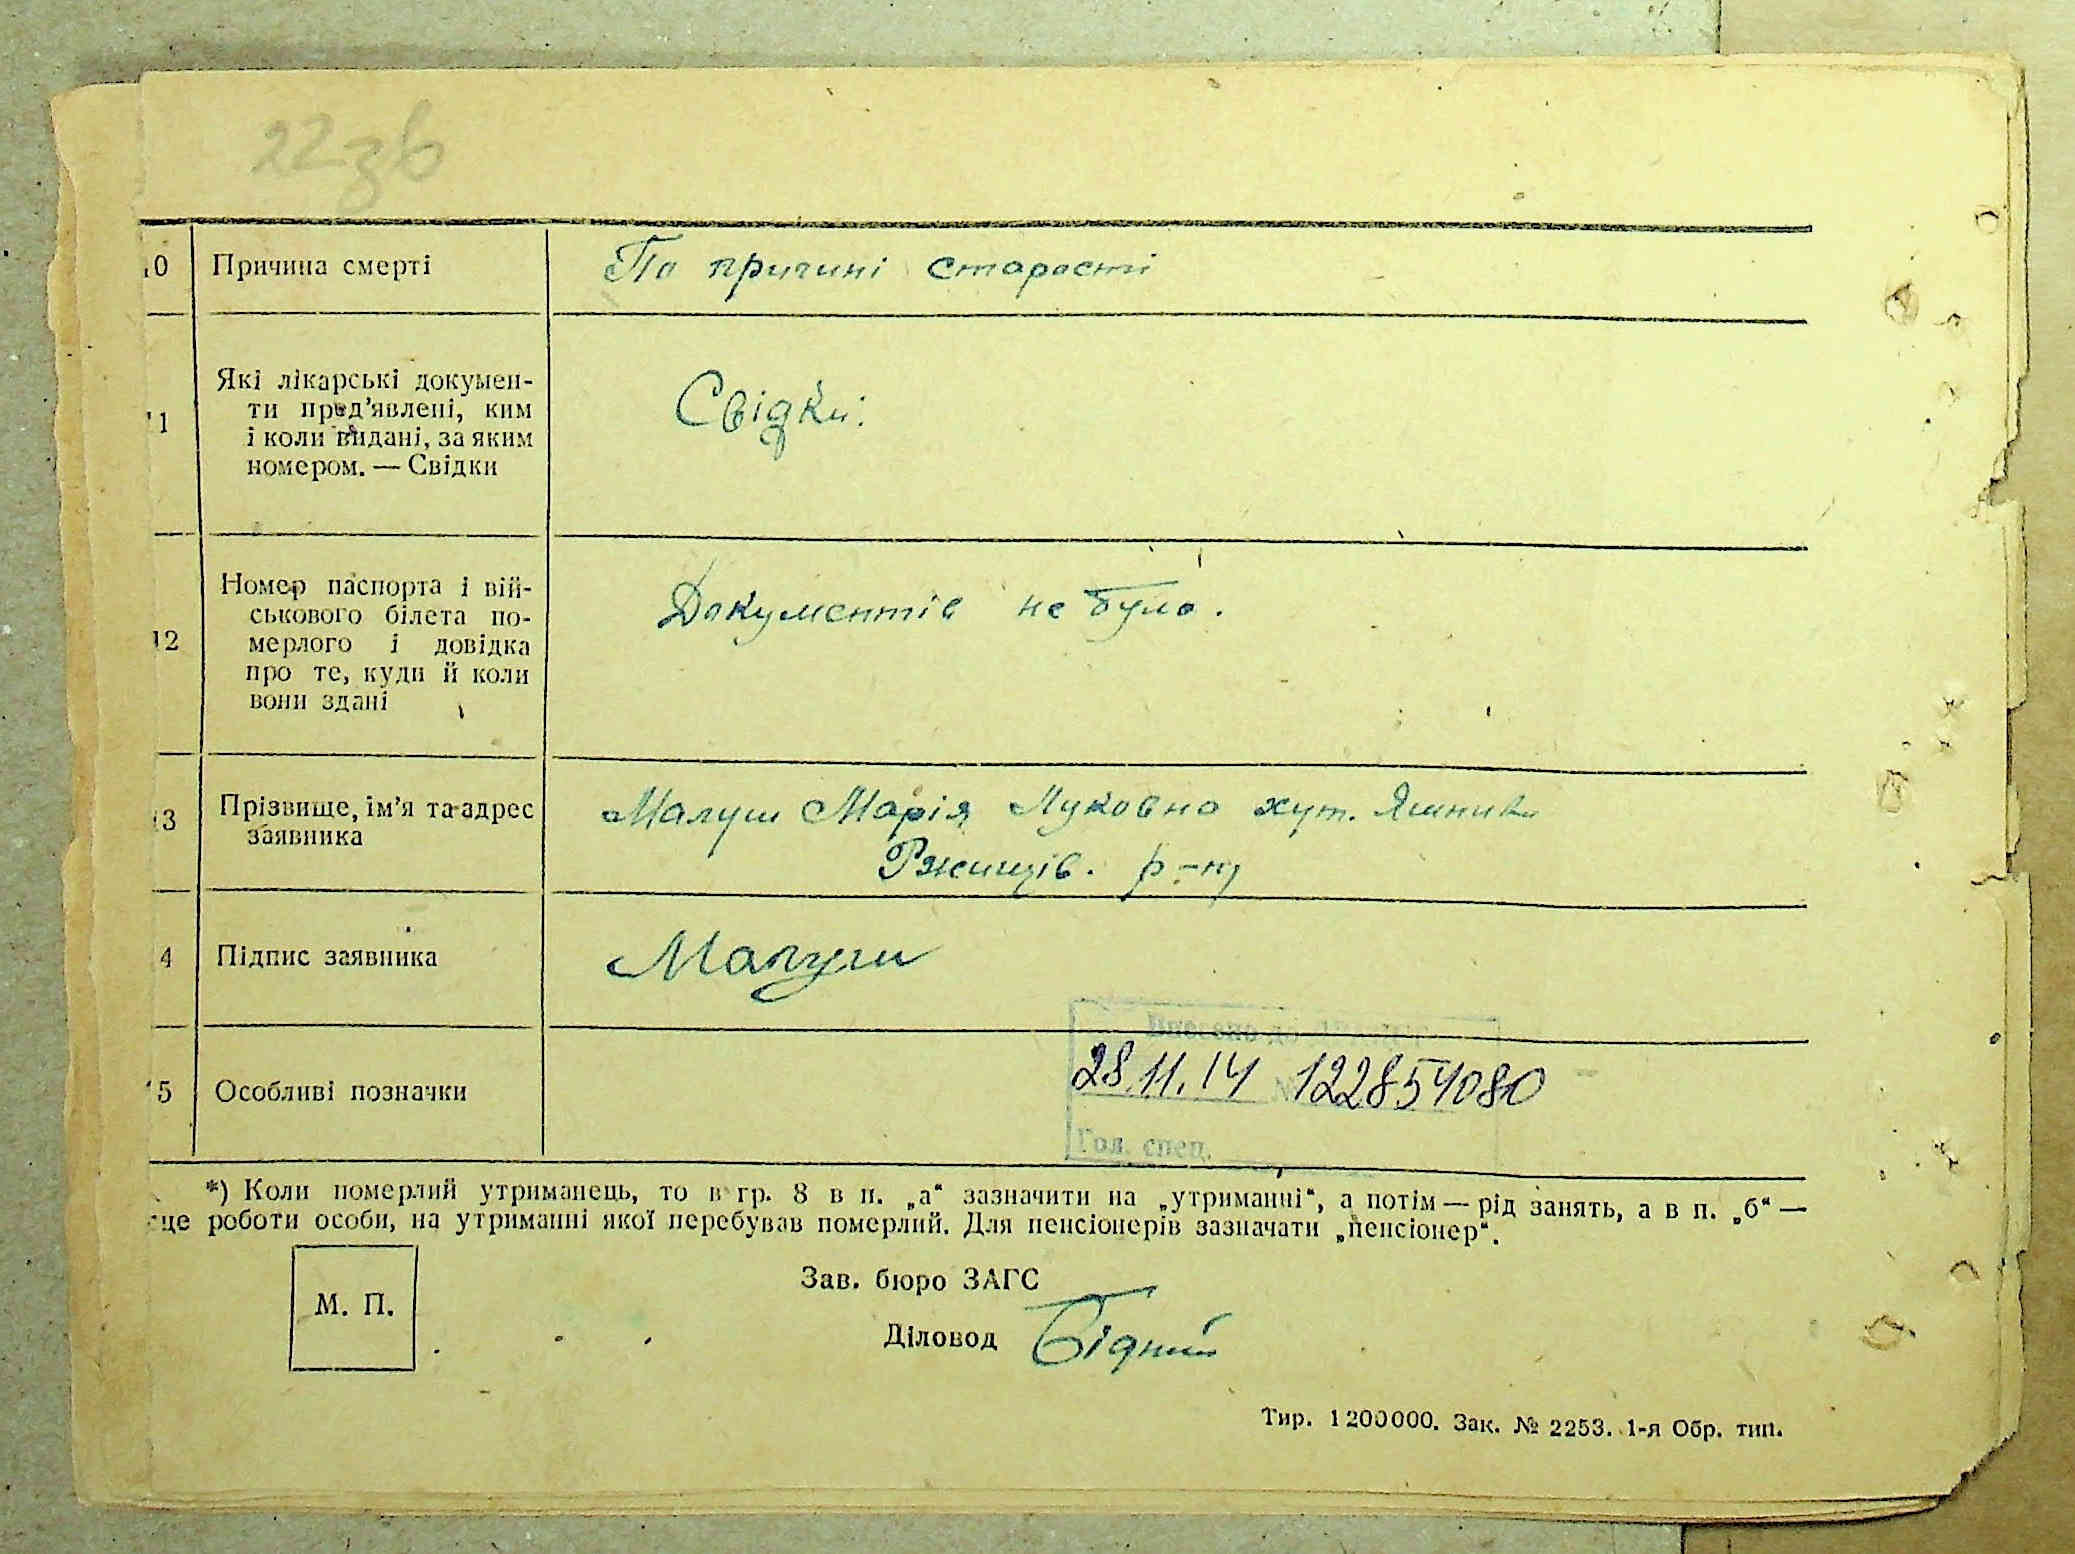 22зв
10 Причина смерті По причині старості
11 Які лікарські докумен-
ти пред'явлені, ким
і коли видані, за яким
номером. — Свідки
Свідки:
12 Номер паспорта і вій-
ськового білета по-
мерлого і довідка
про те, куди й коли
вони здані
Документів не було.
13 Прізвище, ім'я та адрес
заявника
Малуш Марія Луковна хут. Яшники
Ржищів. р-ну
4 Підпис заявника Малуш
Внесено до
15 Особливі позначки 28.11.14 № 122854080
Гол. спец.
*) Коли померлий утриманець, то в гр. 8 в п. „а“ зазначити на „утриманні“, а потім — рід занять, а в п. „б“ —
це роботи особи, на утриманні якої перебував померлий. Для пенсіонерів зазначати „пенсіонер“.
М. П.
Зав. бюро ЗАГС
Діловод Бідний
Тир. 1200000. Зак. № 2253. 1-я Обр. тип.